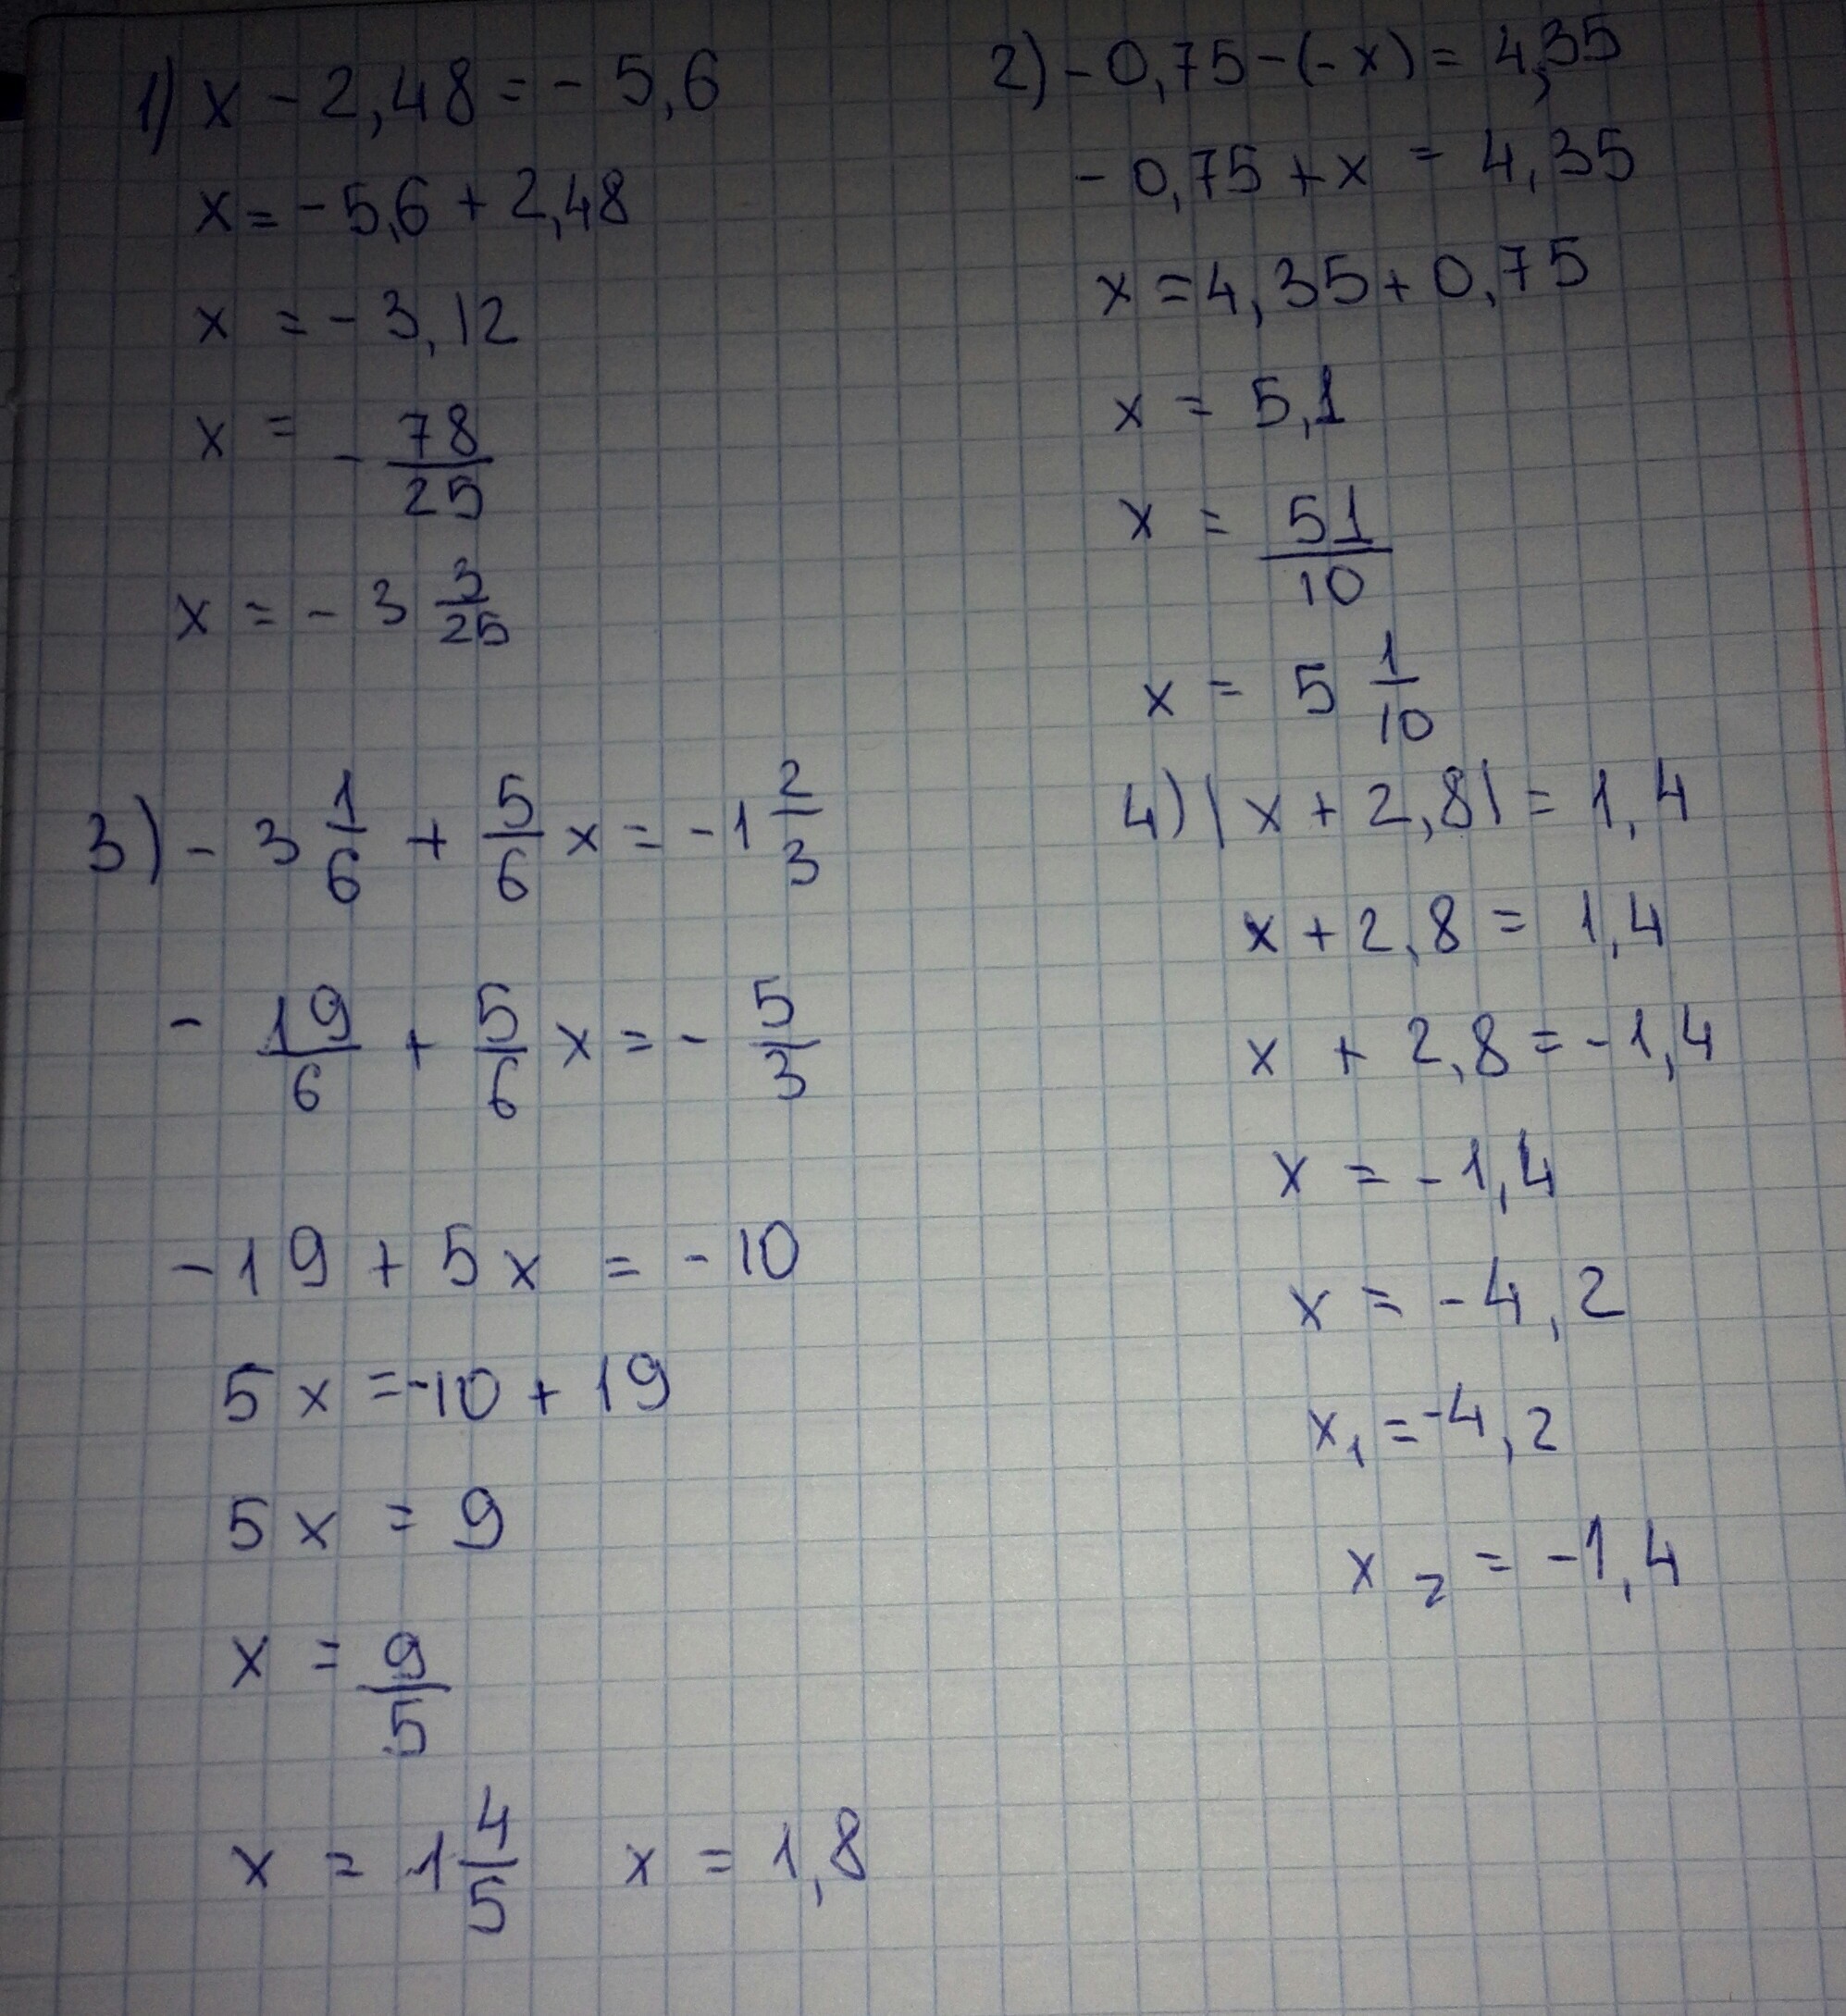 1) x - 2,48 = - 5,6
x = - 5,6 + 2,48
x = - 3,12
x = - 78/25
x = - 3 3/25
2) - 0,75 - (- x) = 4,35
- 0,75 + x = 4,35
x = 4,35 + 0,75
x = 5,1
x = 51/10
x = 5 1/10
3) - 3 1/6 + 5/6 x = - 1 2/3
- 19/6 + 5/6 x = - 5/3
- 19 + 5x = - 10
5x = -10 + 19
5x = 9
x = 9/5
x = 1 4/5 x = 1,8
4) |x + 2,8| = 1,4
x + 2,8 = 1,4
x + 2,8 = - 1,4
x = - 1,4
x = - 4,2
x₁ = -4,2
x₂ = -1,4